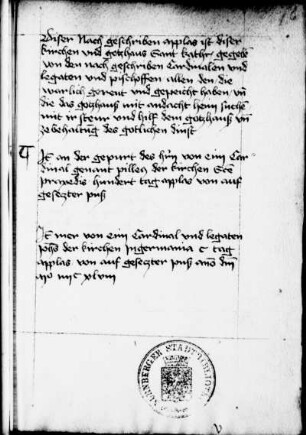 Diser Nach geschriben applas ist diser
kirchen und gotzhaus Sant kathr~ gegebē
von den nach geschriben Cardinalen und
legaten und pischoffen allen den die
warlich gerent und gepeicht haben vn̄
die das gotzhauß mit andacht heim suchē
mit ir steur und hilf dem gotzhauß vn̄
zebehaltūg des gotlichen dinst
It~ an der gepurt des hr~n von eim Car
dinal genant pilleus der kirchen Sctē
praxedis hundert tag applas von auf
gesetzter puß
It~ mer von eim Cardinal und legaten
der kirchen Jn germania C tag
applas von auf gesetzter puß Anō dnī
xlviii
NÜRNBERGER STADTBIBLIOTHEK